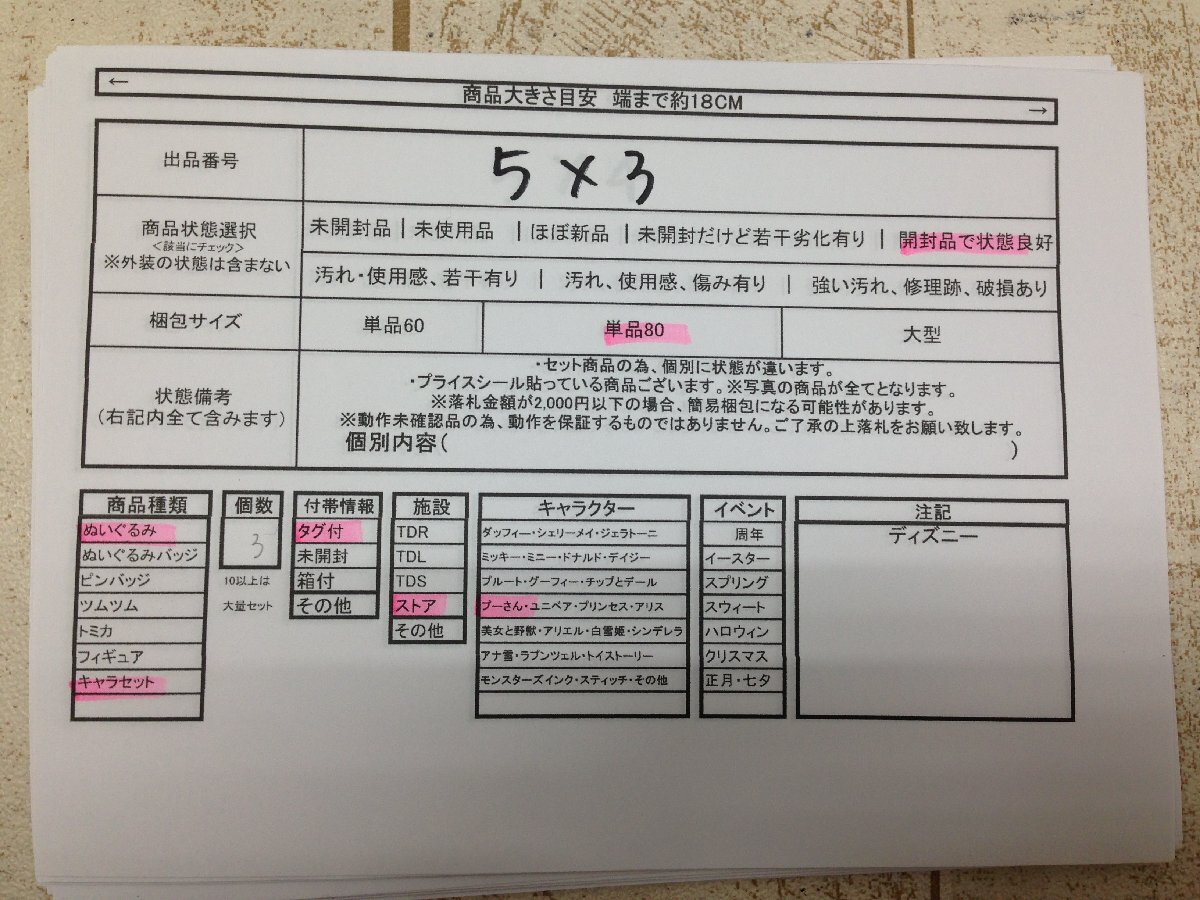 ←
商品大きさ目安 端まで約18CM
→
出品番号
5×3
商品状態選択
<該当にチェック>
※外装の状態は含まない
未開封品 | 未使用品 | ほぼ新品 | 未開封だけど若干劣化有り | 開封品で状態良好
汚れ・使用感、若干有り | 汚れ、使用感、傷み有り | 強い汚れ、修理跡、破損あり
梱包サイズ
単品60
単品80
大型
状態備考
(右記内全て含みます)
・セット商品の為、個別に状態が違います。
・プライスシール貼っている商品ございます。※写真の商品が全てとなります。
※落札金額が2,000円以下の場合、簡易梱包になる可能性があります。
※動作未確認品の為、動作を保証するものではありません。ご了承の上落札をお願い致します。
個別内容( )
商品種類
ぬいぐるみ
ぬいぐるみバッジ
ピンバッジ
ツムツム
トミカ
フィギュア
キャラセット
個数
3
10以上は
大量セット
付帯情報
タグ付
未開封
箱付
その他
施設
TDR
TDL
TDS
ストア
その他
キャラクター
ダッフィー・シェリーメイ・ジェラトーニ
ミッキー・ミニー・ドナルド・デイジー
プルート・グーフィー・チップとデール
プーさん・ユニベア・プリンセス・アリス
美女と野獣・アリエル・白雪姫・シンデレラ
アナ雪・ラプンツェル・トイストーリー
モンスターズインク・スティッチ・その他
イベント
周年
イースター
スプリング
スウィート
ハロウィン
クリスマス
正月・七夕
注記
ディズニー